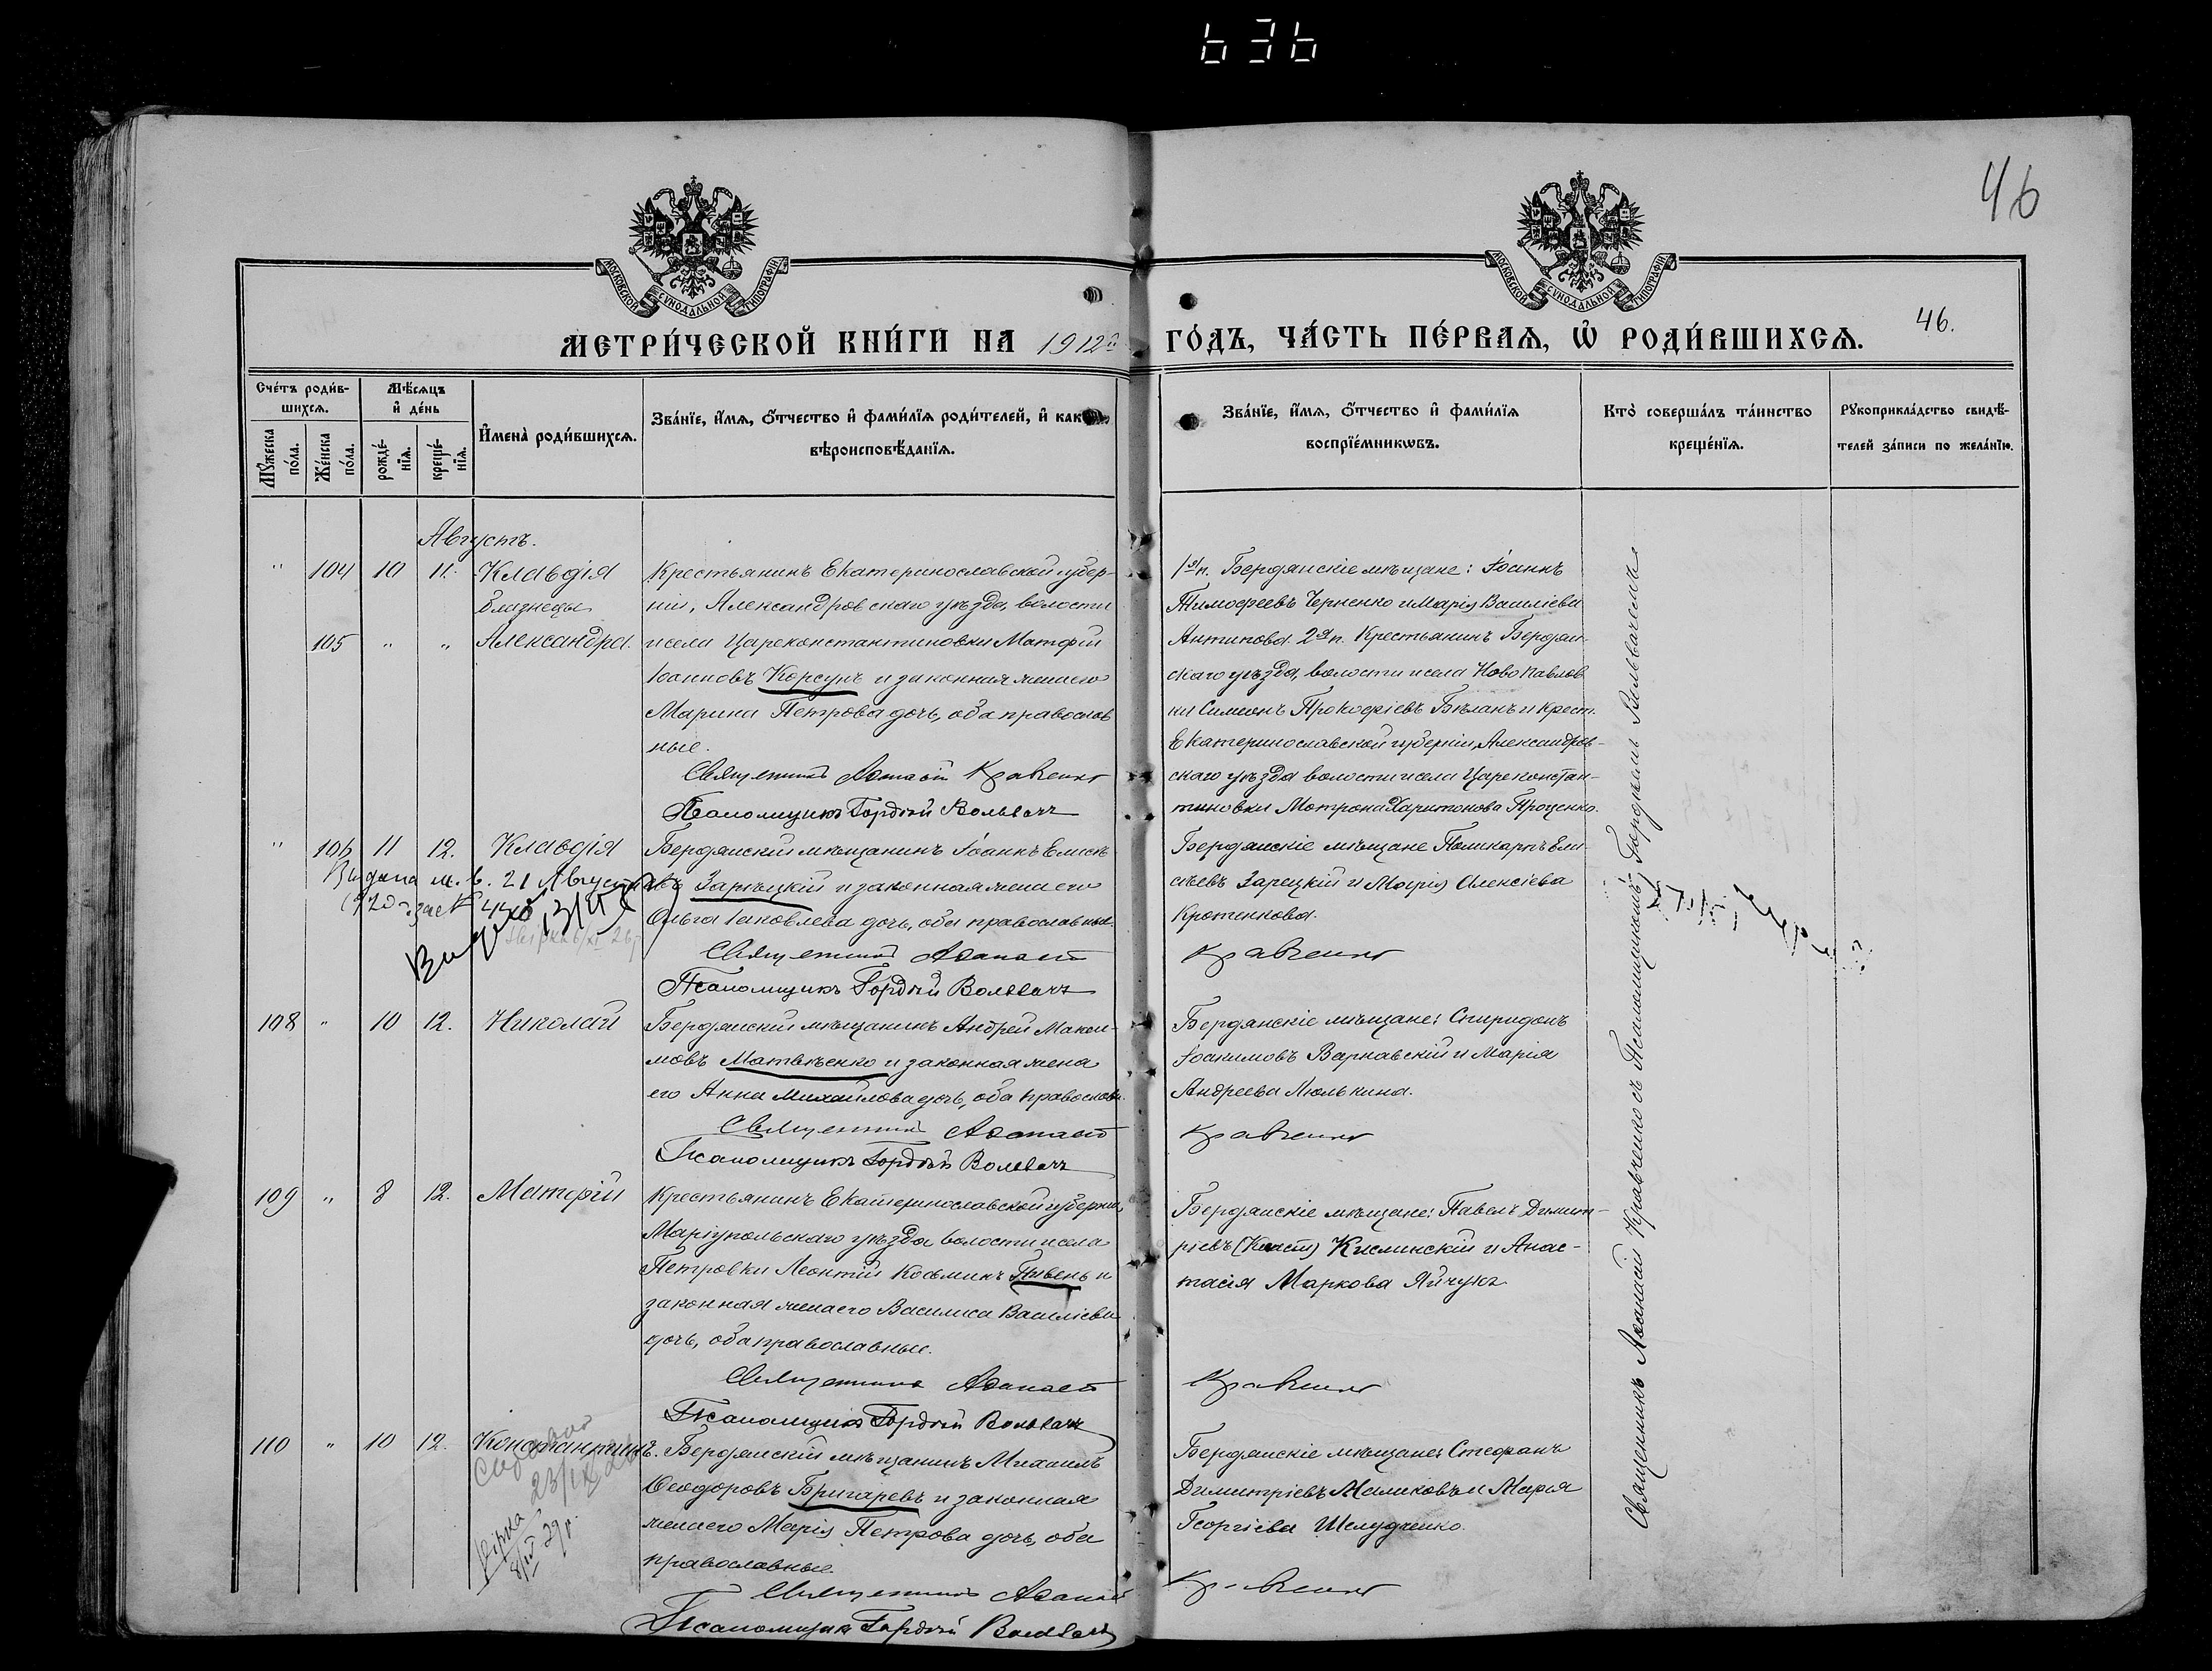 636
46
МОСКОВСКОЙ СѴНОДАЛЬНОЙ ТИПОГРАФІИ
МОСКОВСКОЙ СѴНОДАЛЬНОЙ ТИПОГРАФІИ
МЕТРИ́ЧЕСКОЙ КНИ́ГИ НА 1912й
ГО́ДЪ, ЧА́СТЬ ПЕ́РВАѦ, Ѡ҆ РОДИ́ВШИХСѦ.
46.
Сче́тъ роди́в-
шихсѧ.
Мѣ́сѧцъ
и҆ де́нь
Мꙋ́жеска
по́ла.
Же́нска
по́ла.
рожде́-
нїѧ.
креще́-
нїѧ.
И҆мена̀ роди́вшихсѧ.
Зва́нїе, и҆́мѧ, ѻ҆́тчество и҆ фами́лїѧ роди́телей, и҆ как
вѣроисповѣ́данїѧ.
Зва́нїе, и҆́мѧ, ѻ҆́тчество и҆ фами́лїѧ
воспрїе́мникѡвъ.
Кто̀ соверша́лъ та́инство
креще́нїѧ.
Рꙋкоприкла́дство свидѣ́-
телей за́писи по жела́нїю.
Августъ.
" 104 10 11. Клавдія
близнецы
105 " " Александра.
Крестьянинъ Екатеринославской губер-
ніи, Александровскаго уѣзда, волости
и села Цареконстантиновки Матфій
Іоанновъ Корсунъ и законная жена его
Марина Петрова дочь, оба православ
ные.
Священникъ Аѳанасій Кравченко
Псаломщикъ Гордій Вольвачъ
1я п. Бердянскіе мѣщане: Іоаннъ
Тимоѳеевъ Черненко и Марія Васильева
Антипова. 2я п. Крестьянинъ Бердян-
скаго уѣзда, волости и села Новопавлов
ки Симеонъ Прокофіевъ Бѣланъ и крест.
Екатеринославской губерніи, Александров-
скаго уѣзда волости и села Цареконстан-
тиновки Мотрона Харитонова Проценко.
" 106 11 12. Клавдія
Бердянскій мѣщанинъ Іоаннъ Елисѣ-
евъ Зарѣцкій и законная жена его
Ольга Іаковлева дочь, оба православные.
Священникъ Аѳанасій
Псаломщикъ Гордій Вольвачъ
Выдана м. в. 21 Августа
Бердянскіе мѣщане Поликарпъ Ели-
сѣевъ Зарецкій и Марія Алексіева
Кротенкова.
Кравченко
108 " 10 12. Николай
Бердянскій мѣщанинъ Андрей Макси-
мовъ Матвѣенко и законная жена
его Анна Михайлова дочь, оба православн.
Священникъ Аѳанасій
Псаломщикъ Гордій Вольвачъ
Бердянскіе мѣщане: Спиридонъ
Іоакимовъ Варнавскій и Марія
Андреева Люлькина.
Кравченко
109 " 8 12. Матфій
Крестьянинъ Екатеринославской губерніи,
Маріупольскаго уѣзда волости и села
Петровки Леонтій Косьминъ Пивень и
законная жена его Василиса Васильева
дочь, оба православные.
Священникъ Аѳанасій
Псаломщикъ Гордій Вольвачъ
Бердянскіе мѣщане: Павелъ Димит-
ріевъ Кислинскій и Анас-
тасія Маркова Яйчукъ
Кравченко
110 " 10 12. Константинъ.
Бердянскій мѣщанинъ Михаилъ
Ѳеодоровъ Бригаревъ и законная
жена его Марія Петрова дочь, оба
православные.
Священникъ Аѳанасій
Псаломщикъ Гордій Вольвачъ
23/IX
29 г.
Бердянскіе мѣщане: Стефанъ
Димитріевъ Маликовъ и Марія
Георгіева Шелудченко.
Кравченко
Священникъ Аѳанасій Кравченко съ Псаломщикомъ Гордіемъ Вольвачемъ